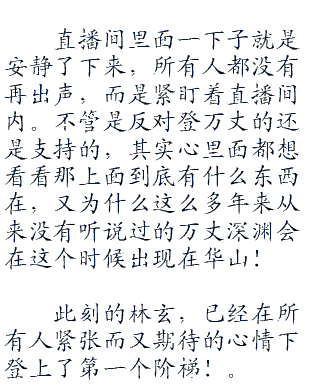 直播间里面一下子就是
安静了下来，所有人都没有
再出声，而是紧盯着直播间
内。不管是反对登万丈的还
是支持的，其实心里面都想
看看那上面到底有什么东西
在，又为什么这么多年来从
来没有听说过的万丈深渊会
在这个时候出现在华山！
此刻的林玄，已经在所
有人紧张而又期待的心情下
登上了第一个阶梯！。